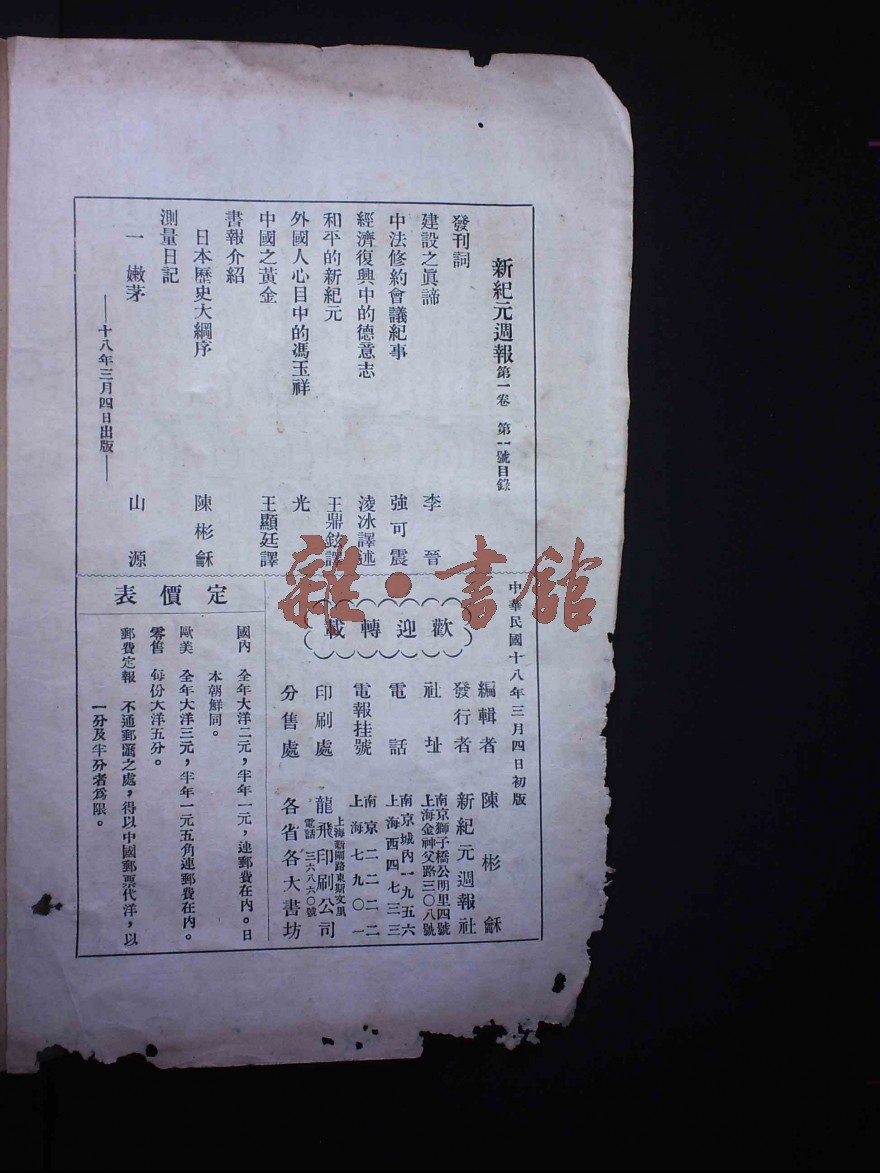 新紀元週報 第一卷 第一號目錄
發刊詞
建設之眞諦 李晉
中法修約會議紀事 強可震
經濟復興中的德意志 淩冰譯述
和平的新紀元 王鼎鉉譯
外國人心目中的馮玉祥 光
中國之黃金 王顯廷譯
書報介紹
日本歷史大綱序 陳彬龢
測量日記
一 嫩茅 山源
——十八年三月四日出版——
中華民國十八年三月四日初版
編輯者 陳彬龢
發行者 新紀元週報社
社址 南京獅子橋公明里四號
上海金神父路三〇八號
電話 南京城內一九五六
上海西四七三三
電報挂號 南京二二二二
上海七九〇一
印刷處 龍飛印刷公司
上海新閘路東斯文里
電話 三六八六〇號
分售處 各省各大書坊
歡迎轉載
定價表
國內 全年大洋二元，半年一元，連郵費在內。日
本朝鮮同。
歐美 全年大洋三元，半年一元五角連郵費在內。
零售 每份大洋五分。
郵費定報 不通郵匯之處，得以中國郵票代洋，以
一分及半分者爲限。
雜·書館